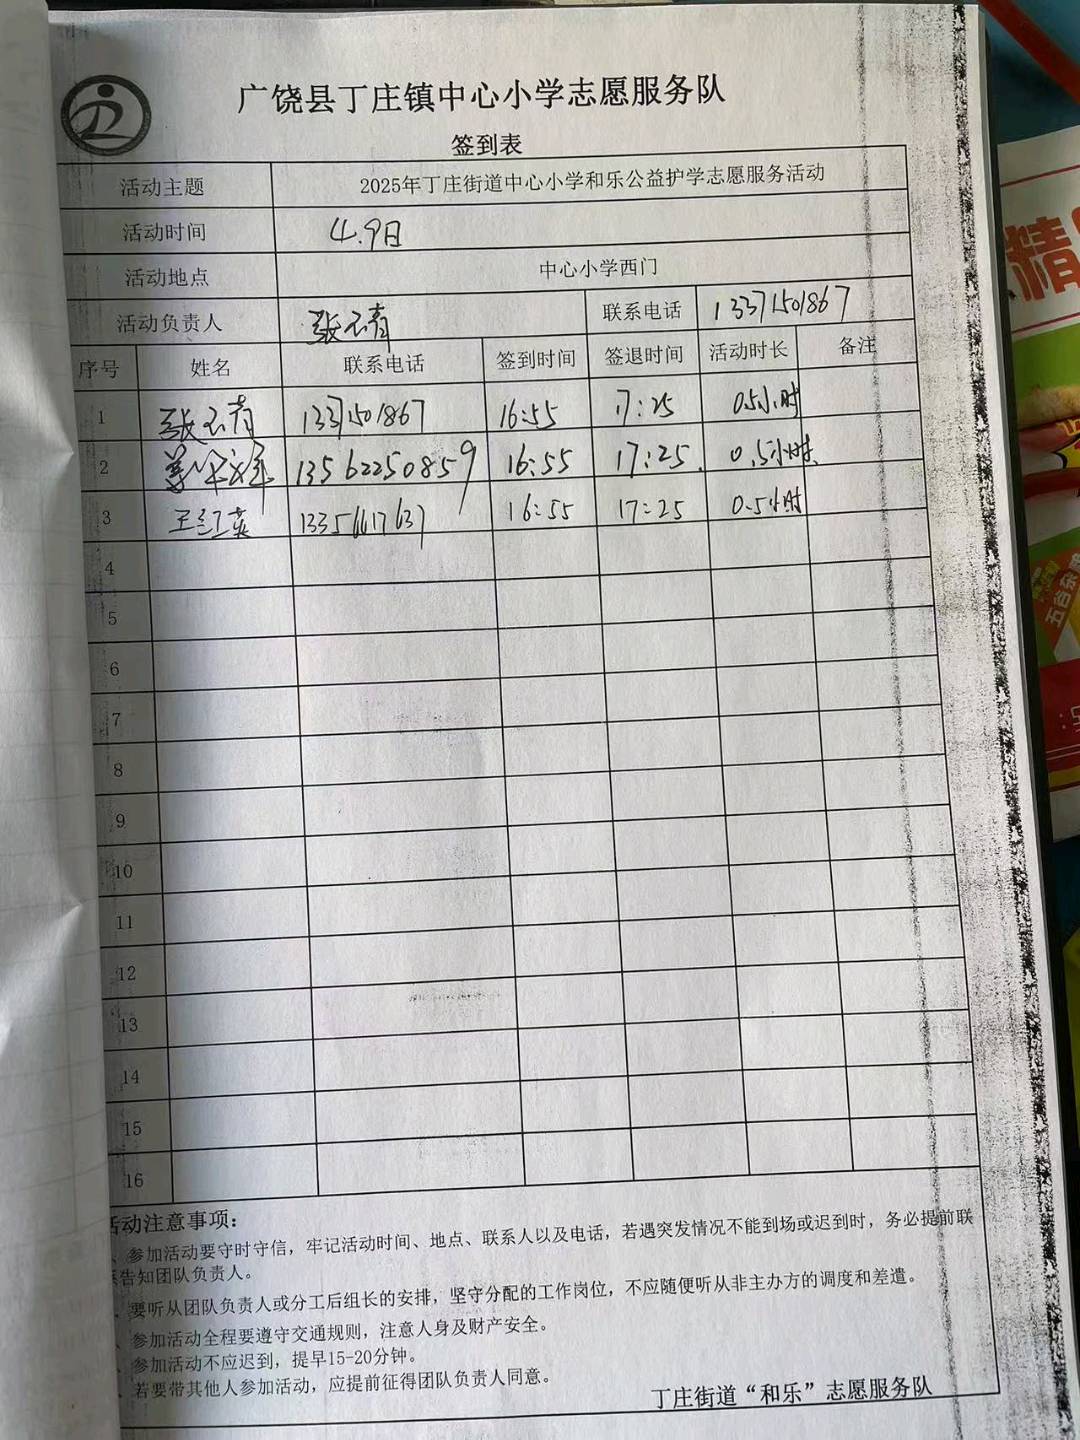 广饶县丁庄镇中心小学志愿服务队
签到表
活动主题 2025年丁庄街道中心小学和乐公益护学志愿服务活动
活动时间 4.9日
活动地点 中心小学西门
活动负责人 张云青 联系电话 13371501867
序号 姓名 联系电话 签到时间 签退时间 活动时长 备注
1 张云青 13371501867 16:55 17:25 0.5小时
2 13562250859 16:55 17:25. 0.5小时.
3 王红英 13356617637 16:55 17:25 0.5小时
4
5
6
7
8
9
10
11
12
13
14
15
16
活动注意事项:
、参加活动要守时守信，牢记活动时间、地点、联系人以及电话，若遇突发情况不能到场或迟到时，务必提前联
系告知团队负责人。
、要听从团队负责人或分工后组长的安排，坚守分配的工作岗位，不应随便听从非主办方的调度和差遣。
、参加活动全程要遵守交通规则，注意人身及财产安全。
、参加活动不应迟到，提早15-20分钟。
、若要带其他人参加活动，应提前征得团队负责人同意。
丁庄街道“和乐”志愿服务队
精
五谷杂